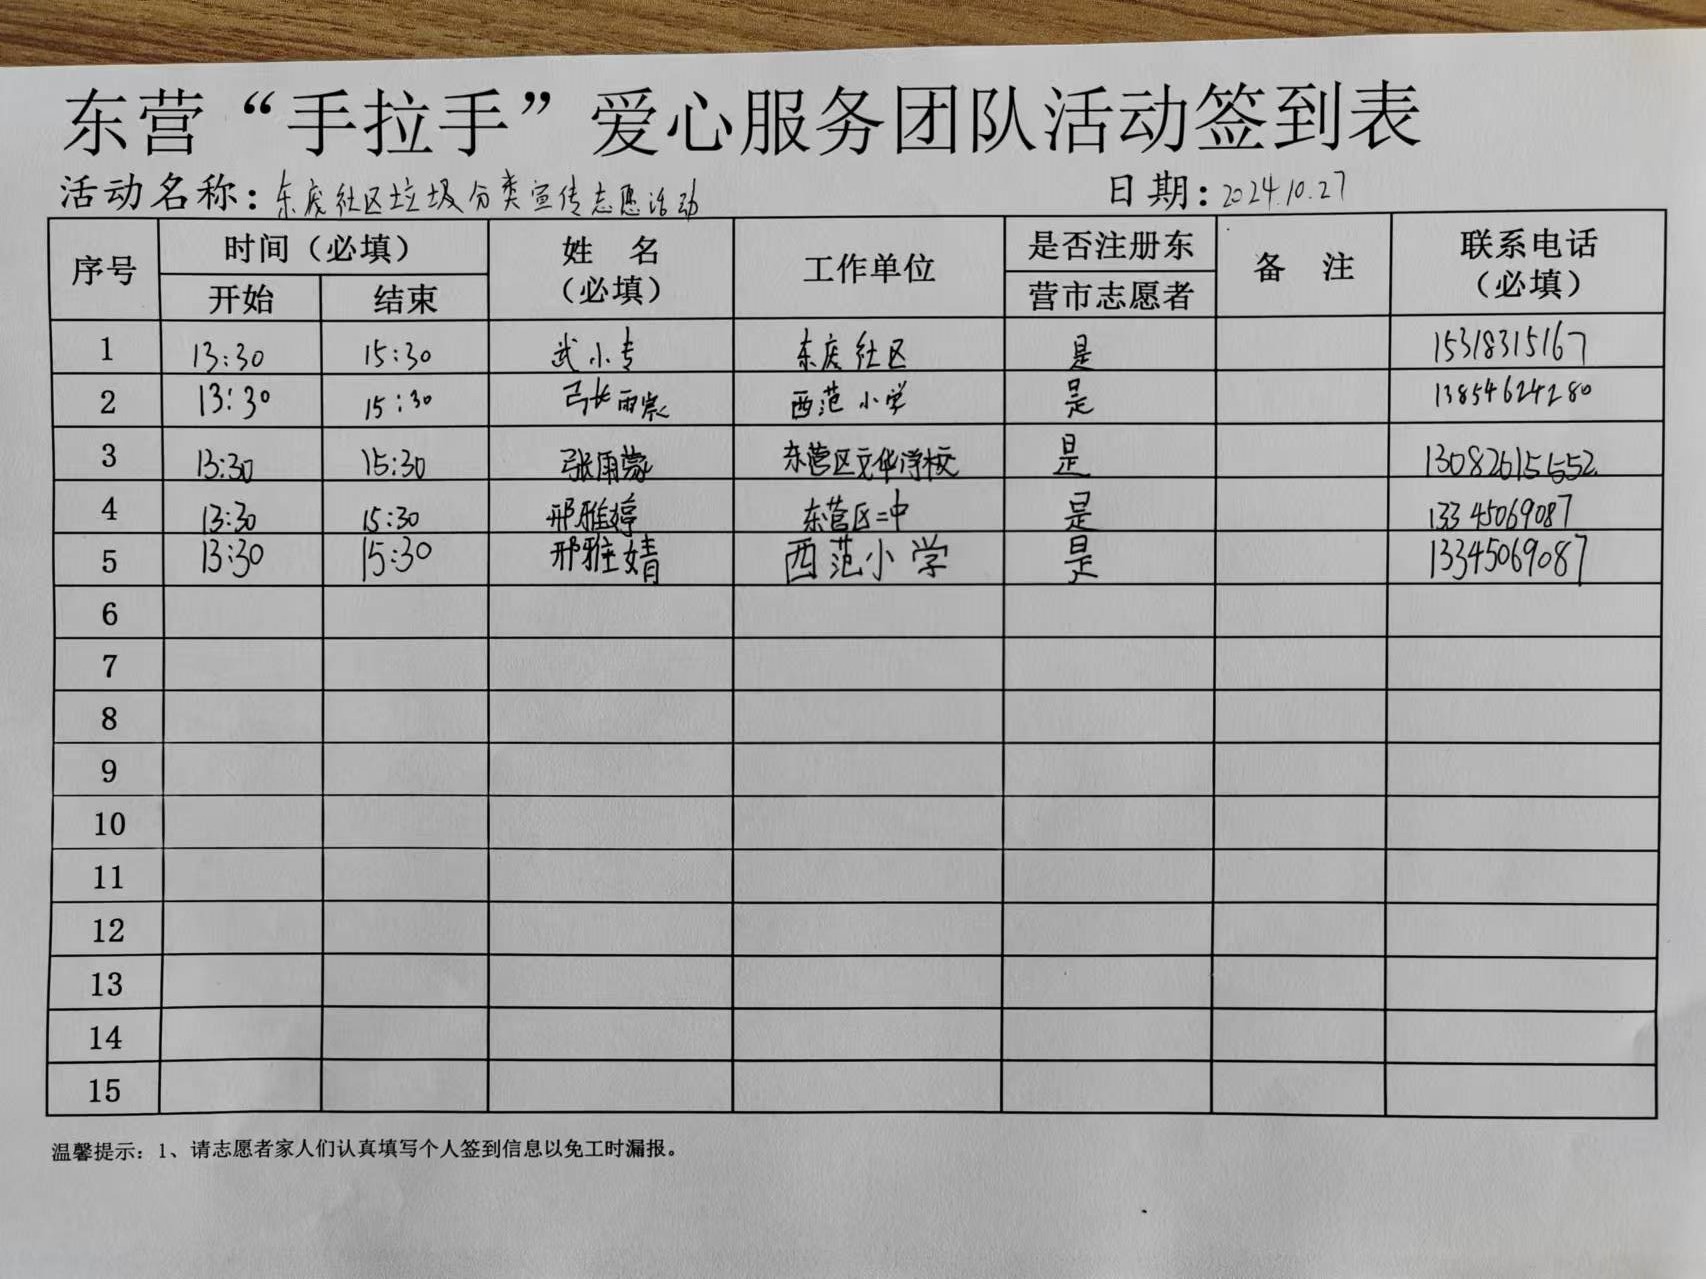 东营“手拉手”爱心服务团队活动签到表
活动名称：东虎社区垃圾分类宣传志愿活动 日期：2024.10.27
序号 时间（必填） 姓 名（必填） 工作单位 是否注册东营市志愿者 备 注 联系电话（必填）
开始 结束
1 13:30 15:30 武小专 社区 是 15318315167
2 13:30 15:30 张雨 西范小学 是 13854624280
3 13:30 15:30 张雨蒙 东营区文华学校 是 13082615552
4 13:30 15:30 邢雅婷 东营区二中 是 13345069087
5 13:30 15:30 邢雅婧 西范小学 是 13345069087
6
7
8
9
10
11
12
13
14
15
温馨提示：1、请志愿者家人们认真填写个人签到信息以免工时漏报。